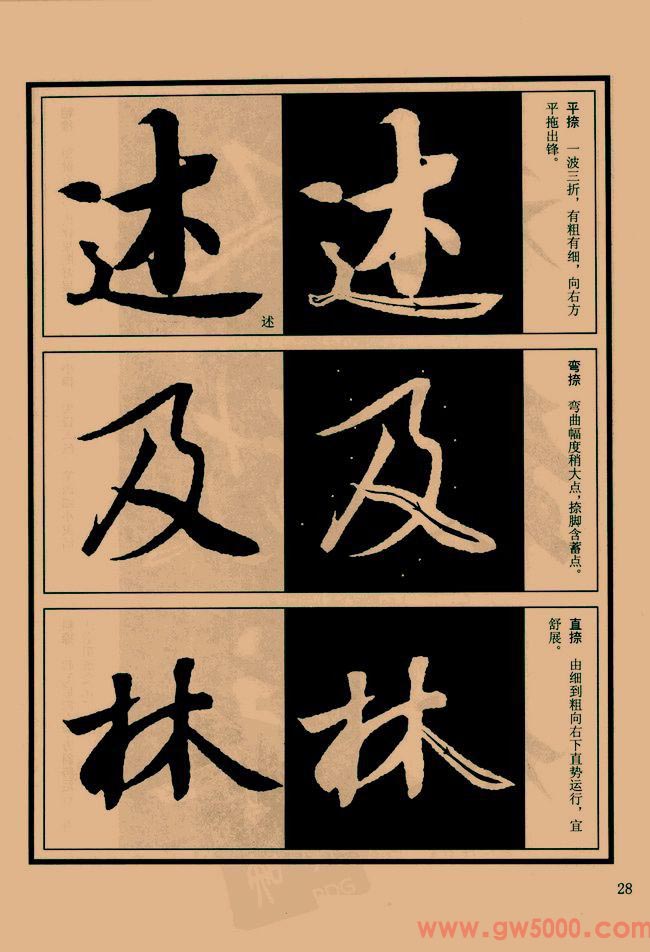 平捺　一波三折，有粗有细，向右方
平拖出锋。
述
述
述
弯捺　弯曲幅度稍大点，捺脚含蓄点。
及
及
直捺　由细到粗向右下直势运行，宜
舒展。
林
林
28
www.gw5000.com